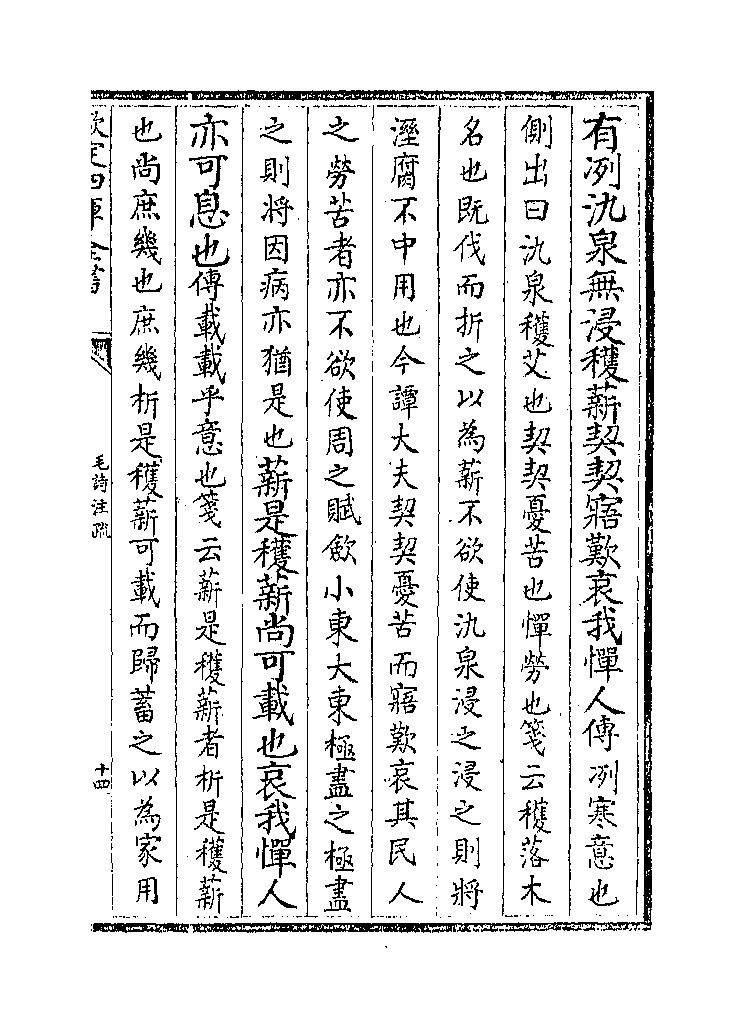 有冽氿泉無浸穫薪契契寤歎哀我憚人傳冽寒意也
側出曰氿泉穫艾也契契憂苦也憚勞也箋云穫落木
名也既伐而折之以為薪不欲使氿泉浸之浸之則將
溼腐不中用也今譚大夫契契憂苦而寤歎哀其民人
之勞苦者亦不欲使周之賦斂小東大東極盡之極盡
之則將因病亦猶是也薪是穫薪尚可載也哀我憚人
亦可息也傳載載乎意也箋云薪是穫薪者析是穫薪
也尚庶幾也庶幾析是穫薪可載而歸蓄之以為家用
欽定四庫全書
毛詩注疏
十四